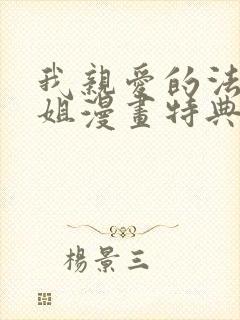 我親愛的法
姐漫畫特典
楊景三